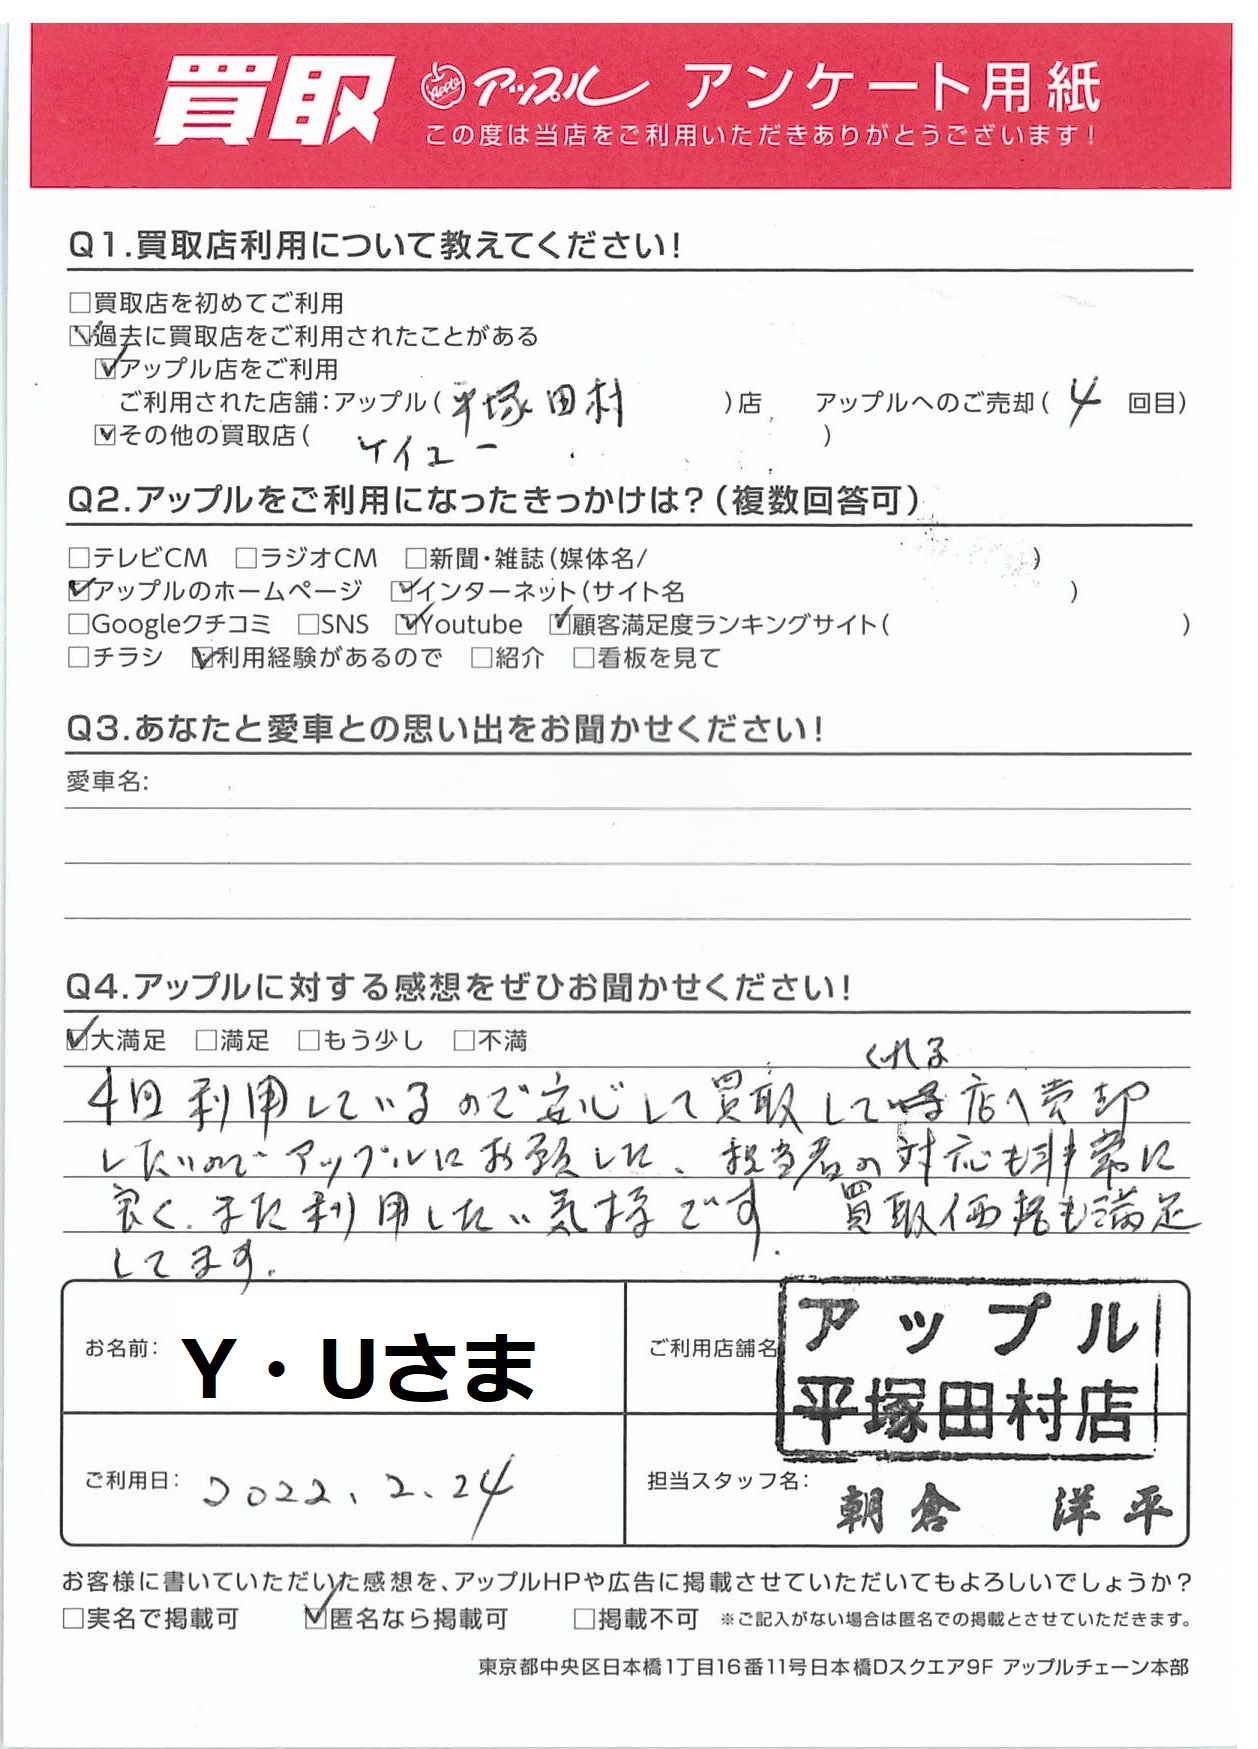 買取 Apple アップル アンケート用紙
この度は当店をご利用いただきありがとうございます!
Q1.買取店利用について教えてください!
□買取店を初めてご利用
☑過去に買取店をご利用されたことがある
☑アップル店をご利用
ご利用された店舗:アップル(平塚田村)店 アップルへのご売却(4回目)
☑その他の買取店(ケイユー)
Q2.アップルをご利用になったきっかけは?(複数回答可)
□テレビCM □ラジオCM □新聞・雑誌(媒体名/ )
☑アップルのホームページ ☑インターネット(サイト名 )
□Googleクチコミ □SNS ☑Youtube ☑顧客満足度ランキングサイト( )
□チラシ ☑利用経験があるので □紹介 □看板を見て
Q3.あなたと愛車との思い出をお聞かせください!
愛車名:
Q4.アップルに対する感想をぜひお聞かせください!
☑大満足 □満足 □もう少し □不満
4回利用しているので安心して買取してくれる店へ売却
したいのでアップルにお願した、担当者の対応も非常に
良く、また利用したい気持です。買取価格も満足
してます。
お名前: Y・Uさま
ご利用店舗名 アップル
平塚田村店
ご利用日: 2022.2.24
担当スタッフ名: 朝倉 洋平
お客様に書いていただいた感想を、アップルHPや広告に掲載させていただいてもよろしいでしょうか?
□実名で掲載可 ☑匿名なら掲載可 □掲載不可 ※ご記入がない場合は匿名での掲載とさせていただきます。
東京都中央区日本橋1丁目16番11号日本橋Dスクエア9F アップルチェーン本部